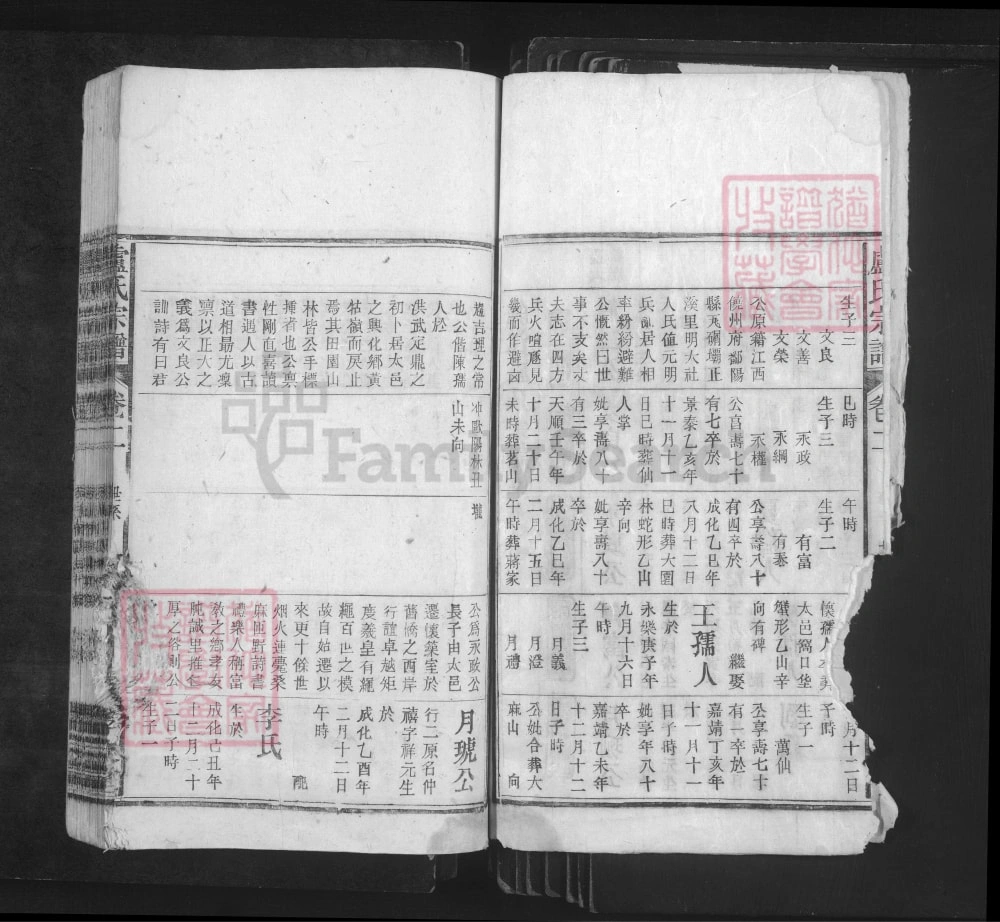 生子三
文良
文善
文榮
公原籍江西
饒州府鄱陽
縣瓦硐壩止
溪里明大社
人民值元明
兵亂居人相
率紛紛避難
公慨然曰世
事不支矣丈
夫志在四方
兵火喧逐見
幾而作避卤
巳時
生子三
永政
永綱
永權
公享壽七十
有七卒於
景泰乙亥年
十一月十一
日巳時葬仙
人掌
妣享壽八十
有三卒於
天順壬午年
十月二十日
未時葬茗山
午時
生子二
有富
有泰
公享壽八十
有四卒於
成化乙巳年
八月十二日
巳時葬大園
林蛇形乙山
辛向
妣享壽八十
卒於
成化乙巳年
二月十五日
午時葬蔣家
太邑窩口垡
蟹形乙山辛
向有碑
繼娶
王孺人
生於
永樂庚子年
九月十六日
午時
生子三
月義
月澄
月禮
月十二日
子時
生子一
萬仙
公享壽七十
有一卒於
嘉靖丁亥年
十一月十一
日子時
妣享年八十
卒於
嘉靖乙未年
十二月十二
日子時
公妣合葬大
麻山 向
盧氏宗譜
卷二
尨吉理之常
也公偕陳孺
人於
洪武定鼎之
初卜居太邑
之興化鄉黃
牯嶽而戾止
焉其田園山
林皆公手標
插者也公稟
性剛直喜讀
書遇人以古
道相勗尤稟
凜以正大之
義為文良公
訓詩有曰君
冲歐陽林丑 壠
山未向
公為永政公
長子由太邑
遷懷築室於
舊橋之西岸
行誼卓越矩
度羲皇有繩
繩百世之模
故自始遷以
來更十餘世
烟火連甍桑
麻匝野詩書
禮樂人稱富
教之鄉孝友
肫誠里推仁
厚之俗則公
月琥公
行二原名仲
禧字祥元生
於
成化乙酉年
二月十二日
午時
配
李氏
生於
成化己丑年
十二月二十
二日子時
生子一
盧氏宗譜
卷二
世系
FamilySearch